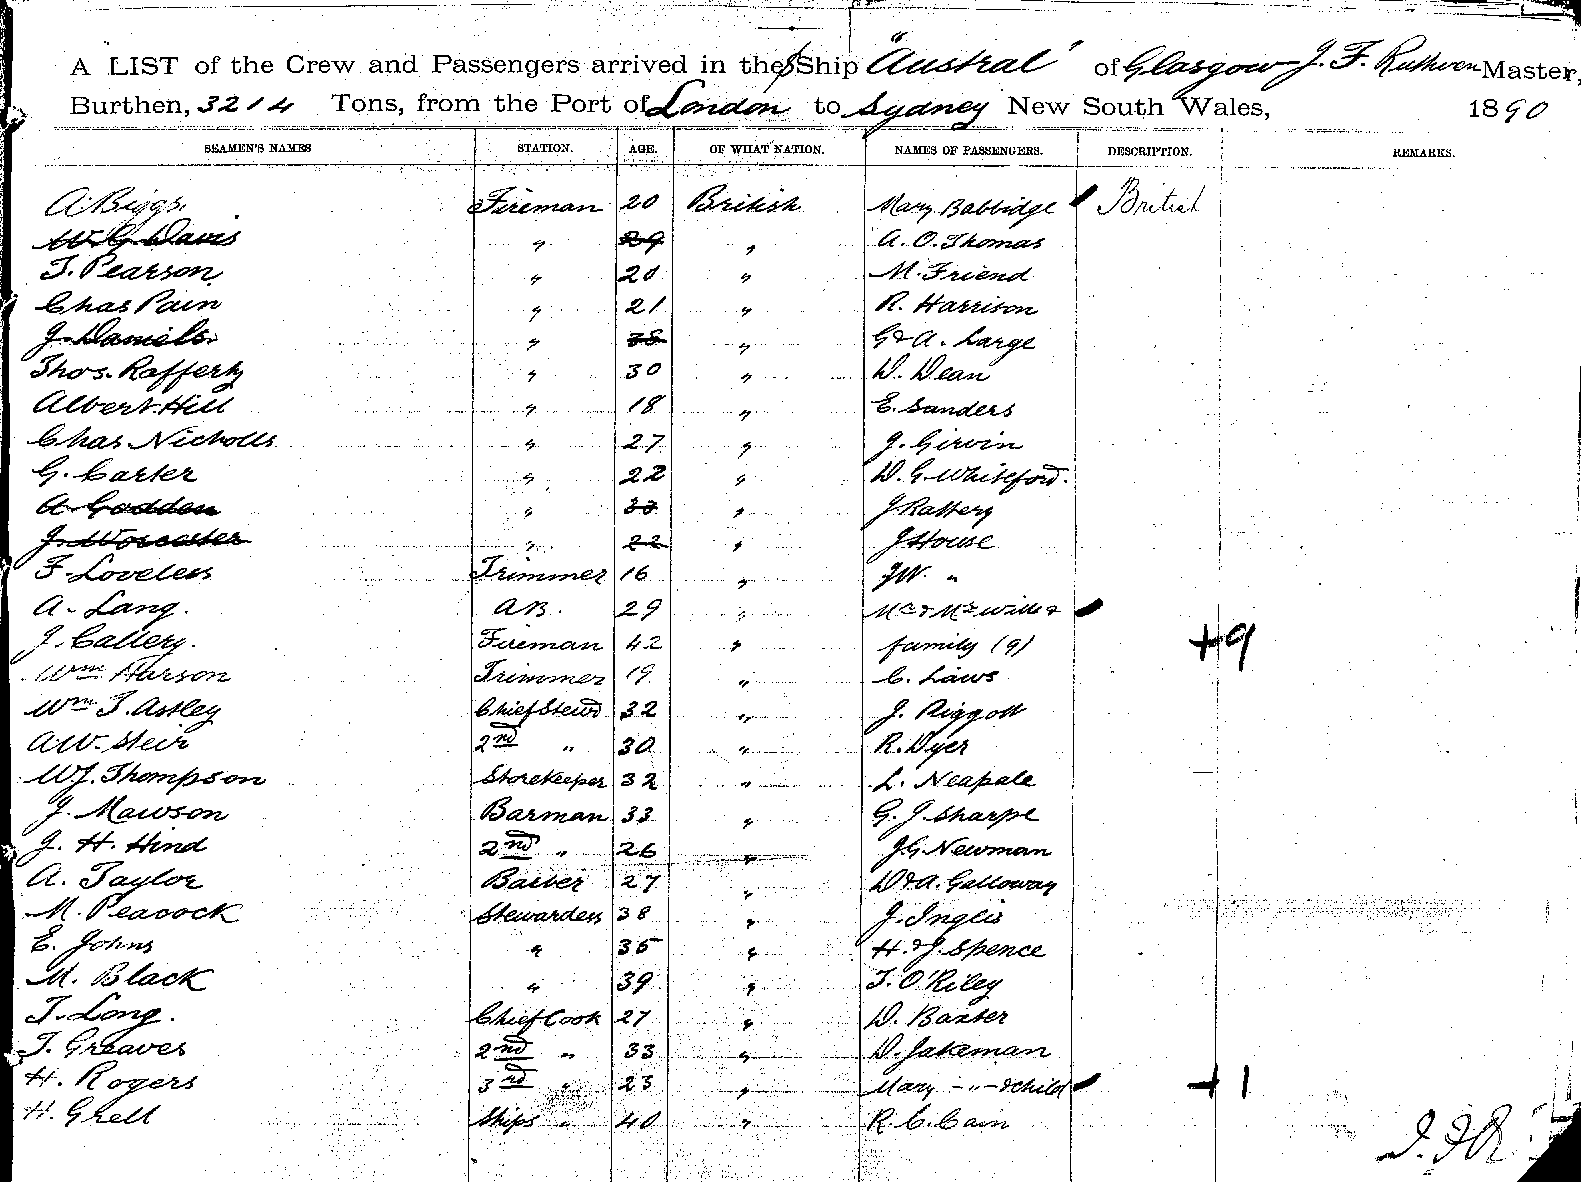 A LIST of the Crew and Passengers arrived in the S Ship "Austral" of Glasgow J. F. Ruthven Master,
Burthen, 3214 Tons, from the Port of London to Sydney New South Wales, 1890
SEAMEN'S NAMES STATION. AGE. OF WHAT NATION. NAMES OF PASSENGERS. DESCRIPTION. REMARKS.
A. Biggs. Fireman 20 British Mary Babbidge British
W. G. Davis " 29 " A. O. Thomas
T. Pearson " 20 " M. Friend
Chas Pain " 21 " R. Harrison
J. Daniels " 38 " G & A. Large
Thos. Rafferty " 30 " D. Dean
Albert Hill " 18 " E. Sanders
Chas. Nicholls " 27 " J. Girvin
G. Carter " 22 " D. G. Whiteford.
A Godden " 33 " J Raffery
J. Worcester " 22 " J House
F. Loveless Trimmer 16 " J W. "
A. Lang. A.B. 29 " Mr & Mrs Willis &
J. Callery. Fireman 42 " family (9) +9
Wm Harson Trimmer 19 " C. Laws
Wm T. Astley Chief Stewd 32 " J. Piggott
A W. Steir 2nd " 30 " R. Dyer
W J. Thompson Storekeeper 32 " L. Neapale
J. Mawson Barman 33 " G. J. Sharpe
J. H. Hind 2nd " 26 " J G Newman
A. Taylor Barber 27 " D & A. Galloway
M. Peacock Stewardess 38 " J. Inglis
E. Johns " 35 " H. & J. Spence
M. Black " 39 " T. O'Riley
T. Long. Chief Cook 27 " D. Baxter
T. Greaves 2nd " 33 " D. Jakeman
H. Rogers 3rd " 23 " Mary - " - & child +1
H. Grell Ships " 40 " R. C. Cain
J. F. R.